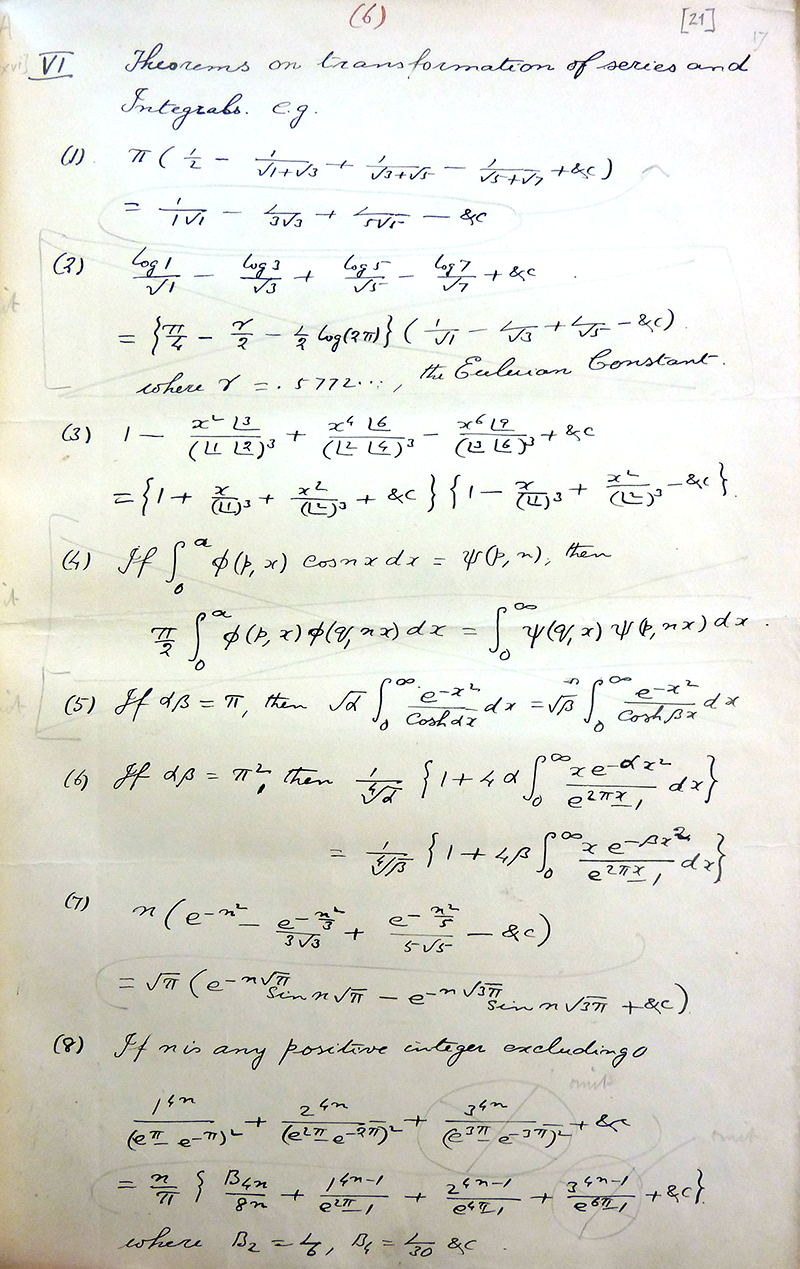 (6) [21] 17
xvi] VI Theorems on transformation of series and
Integrals. e.g.
(1) π ( 1/2 − 1/(√1+√3) + 1/(√3+√5) − 1/(√5+√7) + &c )
= 1/(1√1) − 1/(3√3) + 1/(5√5) − &c
(2) log1/√1 − log3/√3 + log5/√5 − log7/√7 + &c .
= {π/4 − γ/2 − 1/2 log(2π)} ( 1/√1 − 1/√3 + 1/√5 − &c ) .
where γ = .5772···, the Eulerian Constant.
(3) 1 − x² ⌊3/(⌊1 ⌊2)³ + x⁴ ⌊6/(⌊2 ⌊4)³ − x⁶ ⌊9/(⌊3 ⌊6)³ + &c
= {1 + x/(⌊1)³ + x²/(⌊2)³ + &c } {1 − x/(⌊1)³ + x²/(⌊2)³ − &c }.
(4) If ∫₀^a φ(p, x) cos nx dx = ψ(p, n), then
π/2 ∫₀^a φ(p, x) φ(q, nx) dx = ∫₀^∞ ψ(q, x) ψ(p, nx) dx .
(5) If αβ = π, then √α ∫₀^∞ e^(−x²)/cosh αx dx = √β ∫₀^∞ e^(−x²)/cosh βx dx
(6) If αβ = π², then 1/⁴√α {1 + 4α ∫₀^∞ x e^(−αx²)/(e^(2πx) − 1) dx}
= 1/⁴√β {1 + 4β ∫₀^∞ x e^(−βx²)/(e^(2πx) − 1) dx}
(7) n ( e^(−n²) − e^(−n²/3)/(3√3) + e^(−n²/5)/(5√5) − &c )
= √π ( e^(−n√π) sin n√π − e^(−n√3π) sin n√3π + &c )
(8) If n is any positive integer excluding 0
omit
1^(4n)/(e^π − e^(−π))² + 2^(4n)/(e^(2π) − e^(−2π))² + 3^(4n)/(e^(3π) − e^(−3π))² + &c
omit
= n/π { B₄ₙ/8n + 1^(4n−1)/(e^(2π) − 1) + 2^(4n−1)/(e^(4π) − 1) + 3^(4n−1)/(e^(6π) − 1) + &c }
where B₂ = 1/6, B₄ = 1/30 &c .